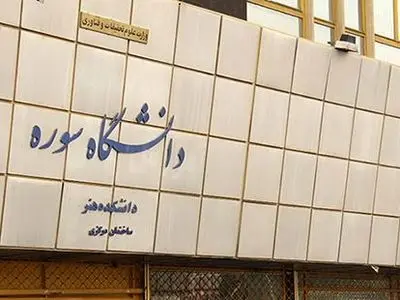 وزارت علوم تحقیقات و فناوری
دانشگاه سوره
دانشکده هنر
ساختمان مرکزی